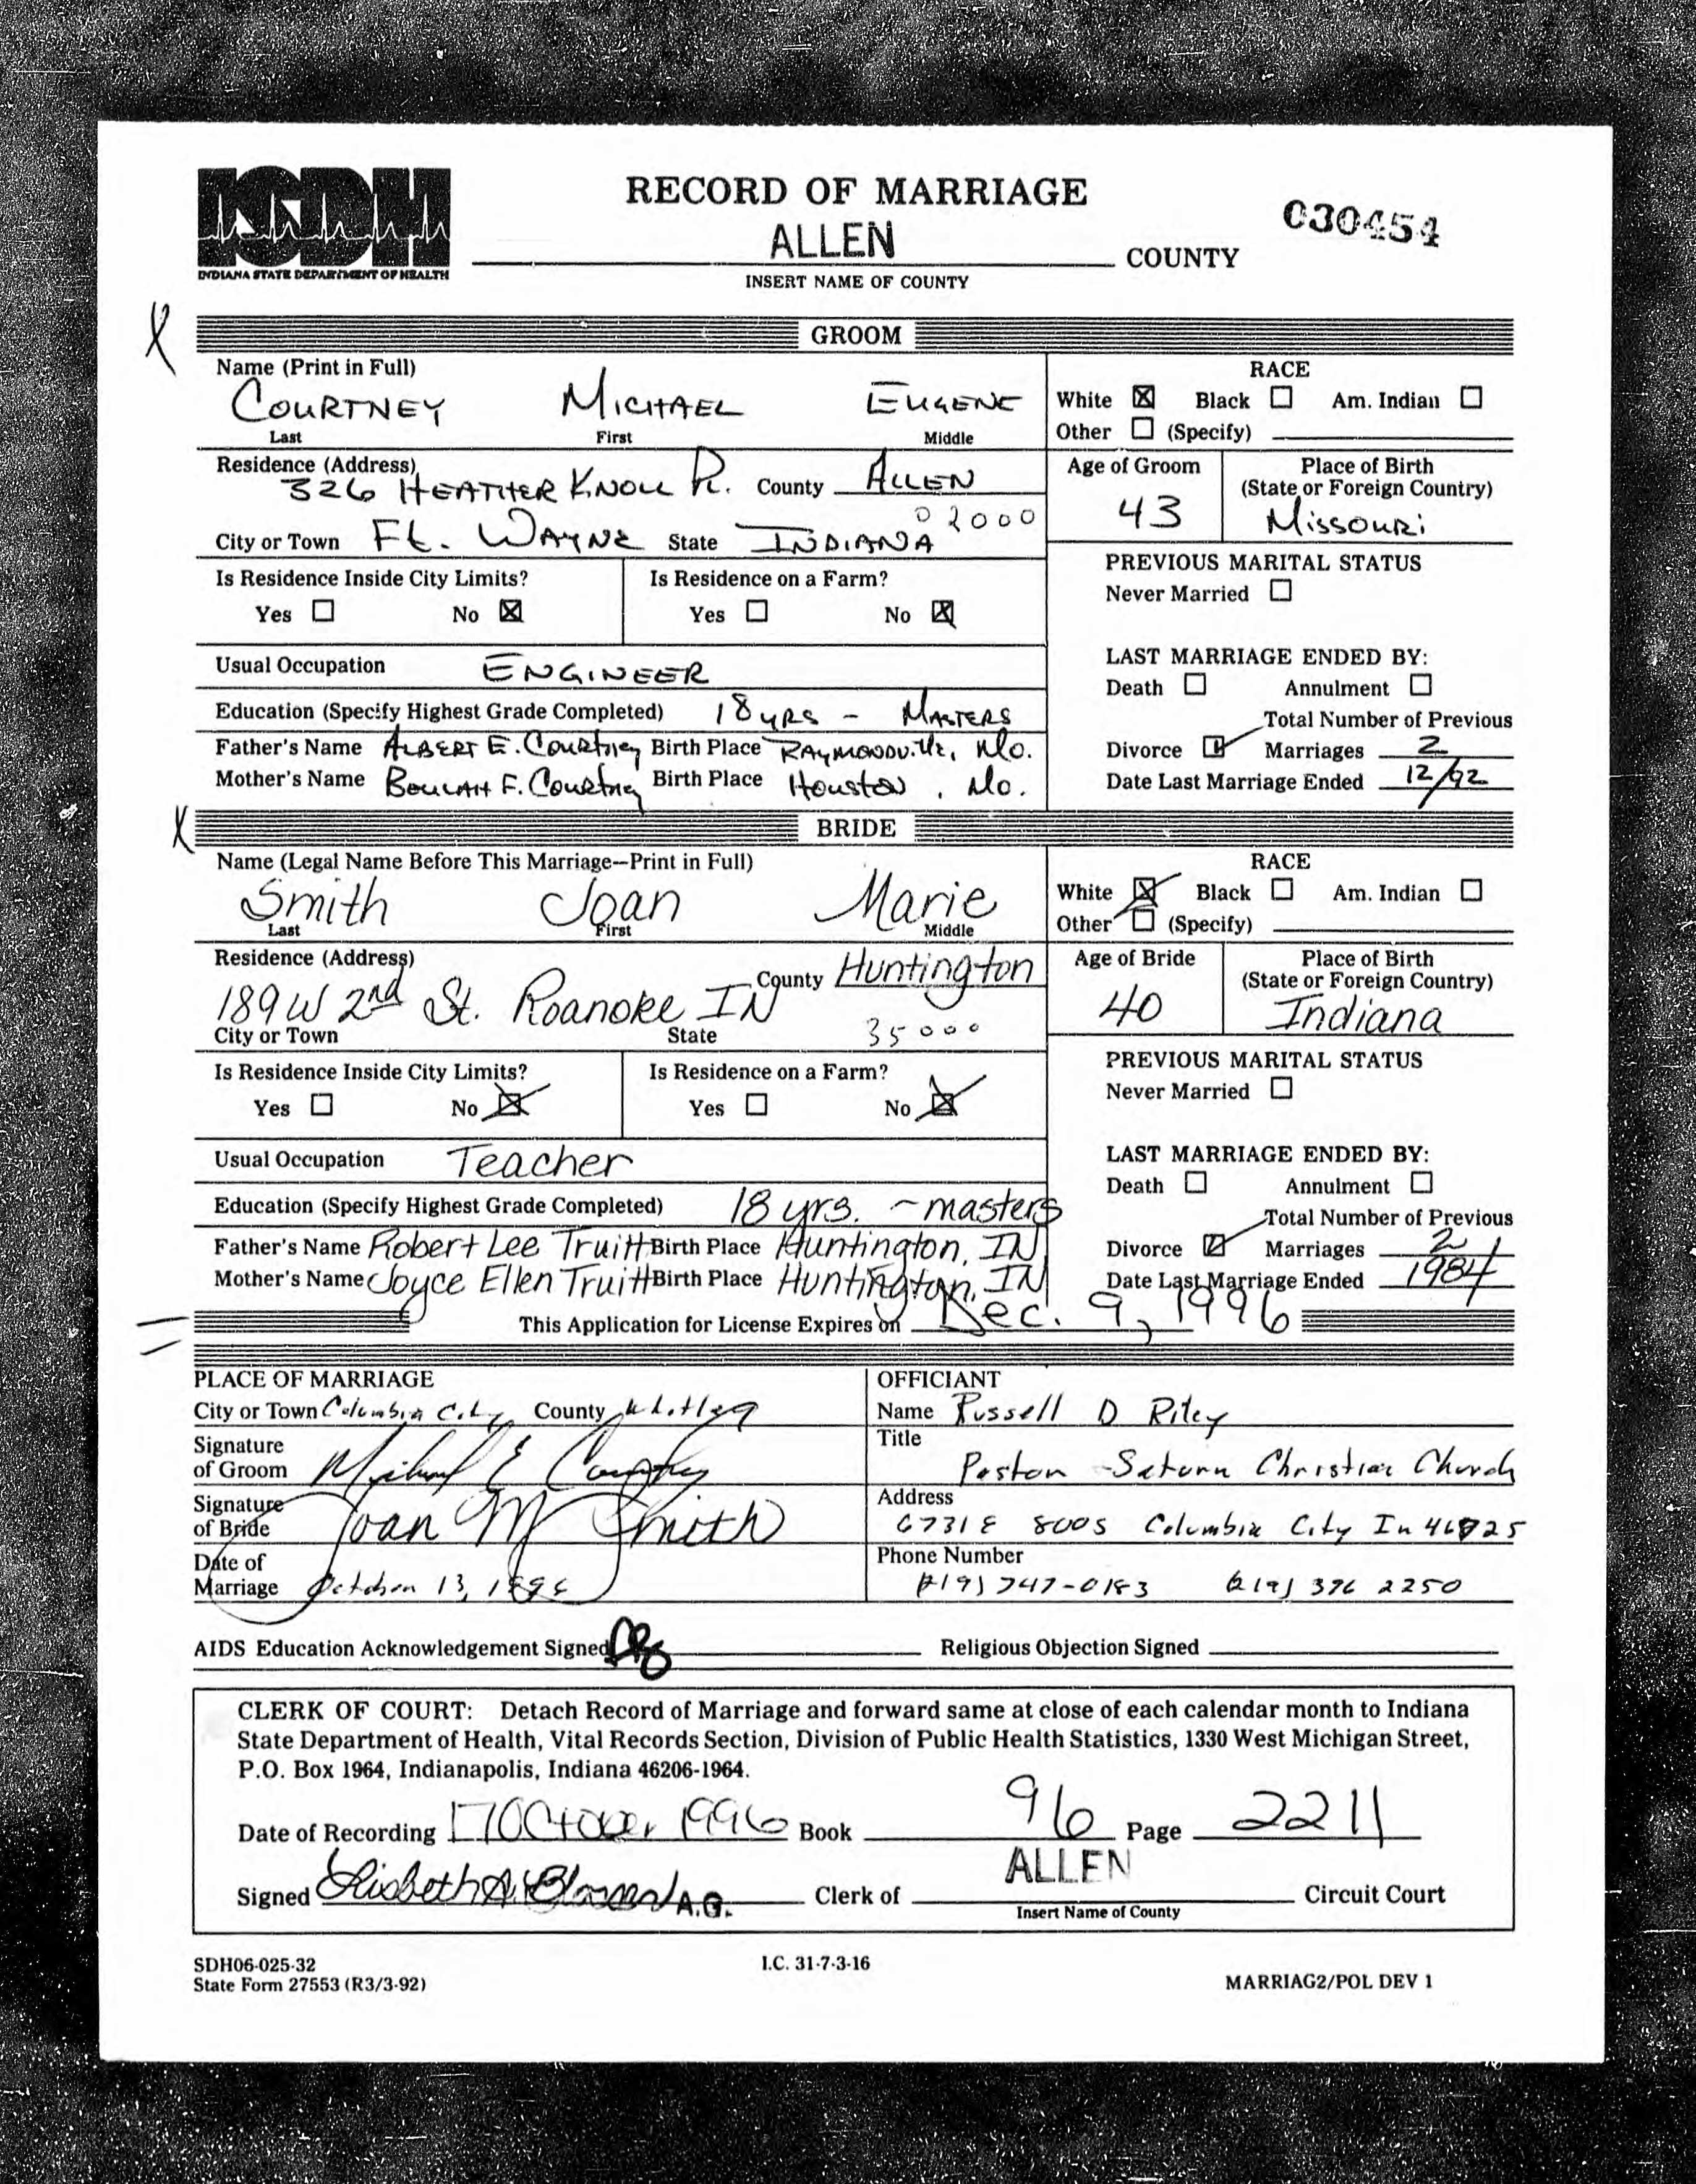 ISDH
INDIANA STATE DEPARTMENT OF HEALTH
RECORD OF MARRIAGE
030454
ALLEN COUNTY
INSERT NAME OF COUNTY
X
GROOM
Name (Print in Full)
COURTNEY MICHAEL EUGENE
Last First Middle
RACE
White ☒ Black ☐ Am. Indian ☐
Other ☐ (Specify)
Residence (Address) 326 HEATHER KNOLL Pl. County ALLEN
City or Town Ft. WAYNE State INDIANA 02000
Age of Groom 43
Place of Birth
(State or Foreign Country)
MISSOURI
Is Residence Inside City Limits? Is Residence on a Farm?
Yes ☐ No ☒ Yes ☐ No ☒
PREVIOUS MARITAL STATUS
Never Married ☐
Usual Occupation ENGINEER
Education (Specify Highest Grade Completed) 18 YRS - MASTERS
Father's Name ALBERT E. Courtney Birth Place RAYMONDVille, Mo.
Mother's Name BEULAH F. Courtney Birth Place Houston, Mo.
LAST MARRIAGE ENDED BY:
Death ☐ Annulment ☐
Total Number of Previous
Divorce ☑ Marriages 2
Date Last Marriage Ended 12/92
X
BRIDE
Name (Legal Name Before This Marriage—Print in Full)
Smith Joan Marie
Last First Middle
RACE
White ☒ Black ☐ Am. Indian ☐
Other ☐ (Specify)
Residence (Address) County Huntington
189 W 2nd St. Roanoke IN
City or Town State 35000
Age of Bride 40
Place of Birth
(State or Foreign Country)
Indiana
Is Residence Inside City Limits? Is Residence on a Farm?
Yes ☐ No ☒ Yes ☐ No ☒
PREVIOUS MARITAL STATUS
Never Married ☐
Usual Occupation Teacher
Education (Specify Highest Grade Completed) 18 yrs. - masters
Father's Name Robert Lee Truitt Birth Place Huntington, IN
Mother's Name Joyce Ellen Truitt Birth Place Huntington, IN
LAST MARRIAGE ENDED BY:
Death ☐ Annulment ☐
Total Number of Previous
Divorce ☑ Marriages 2
Date Last Marriage Ended 1984
This Application for License Expires on Dec. 9, 1996
PLACE OF MARRIAGE
City or Town Columbia City County Whitley
Signature
of Groom Michael E Courtney
Signature
of Bride Joan M Smith
Date of
Marriage October 13, 1996
OFFICIANT
Name Russell D Riley
Title
Pastor - Saturn Christian Church
Address
6731 E 800 S Columbia City In 46725
Phone Number
(219) 747-0183 (219) 396 2250
AIDS Education Acknowledgement Signed Religious Objection Signed
CLERK OF COURT: Detach Record of Marriage and forward same at close of each calendar month to Indiana
State Department of Health, Vital Records Section, Division of Public Health Statistics, 1330 West Michigan Street,
P.O. Box 1964, Indianapolis, Indiana 46206-1964.
Date of Recording 17 October 1996 Book 96 Page 2211
Signed Lisbeth A. A.G. Clerk of ALLEN Circuit Court
Insert Name of County
SDH06-025-32
State Form 27553 (R3/3-92)
I.C. 31-7-3-16
MARRIAG2/POL DEV 1